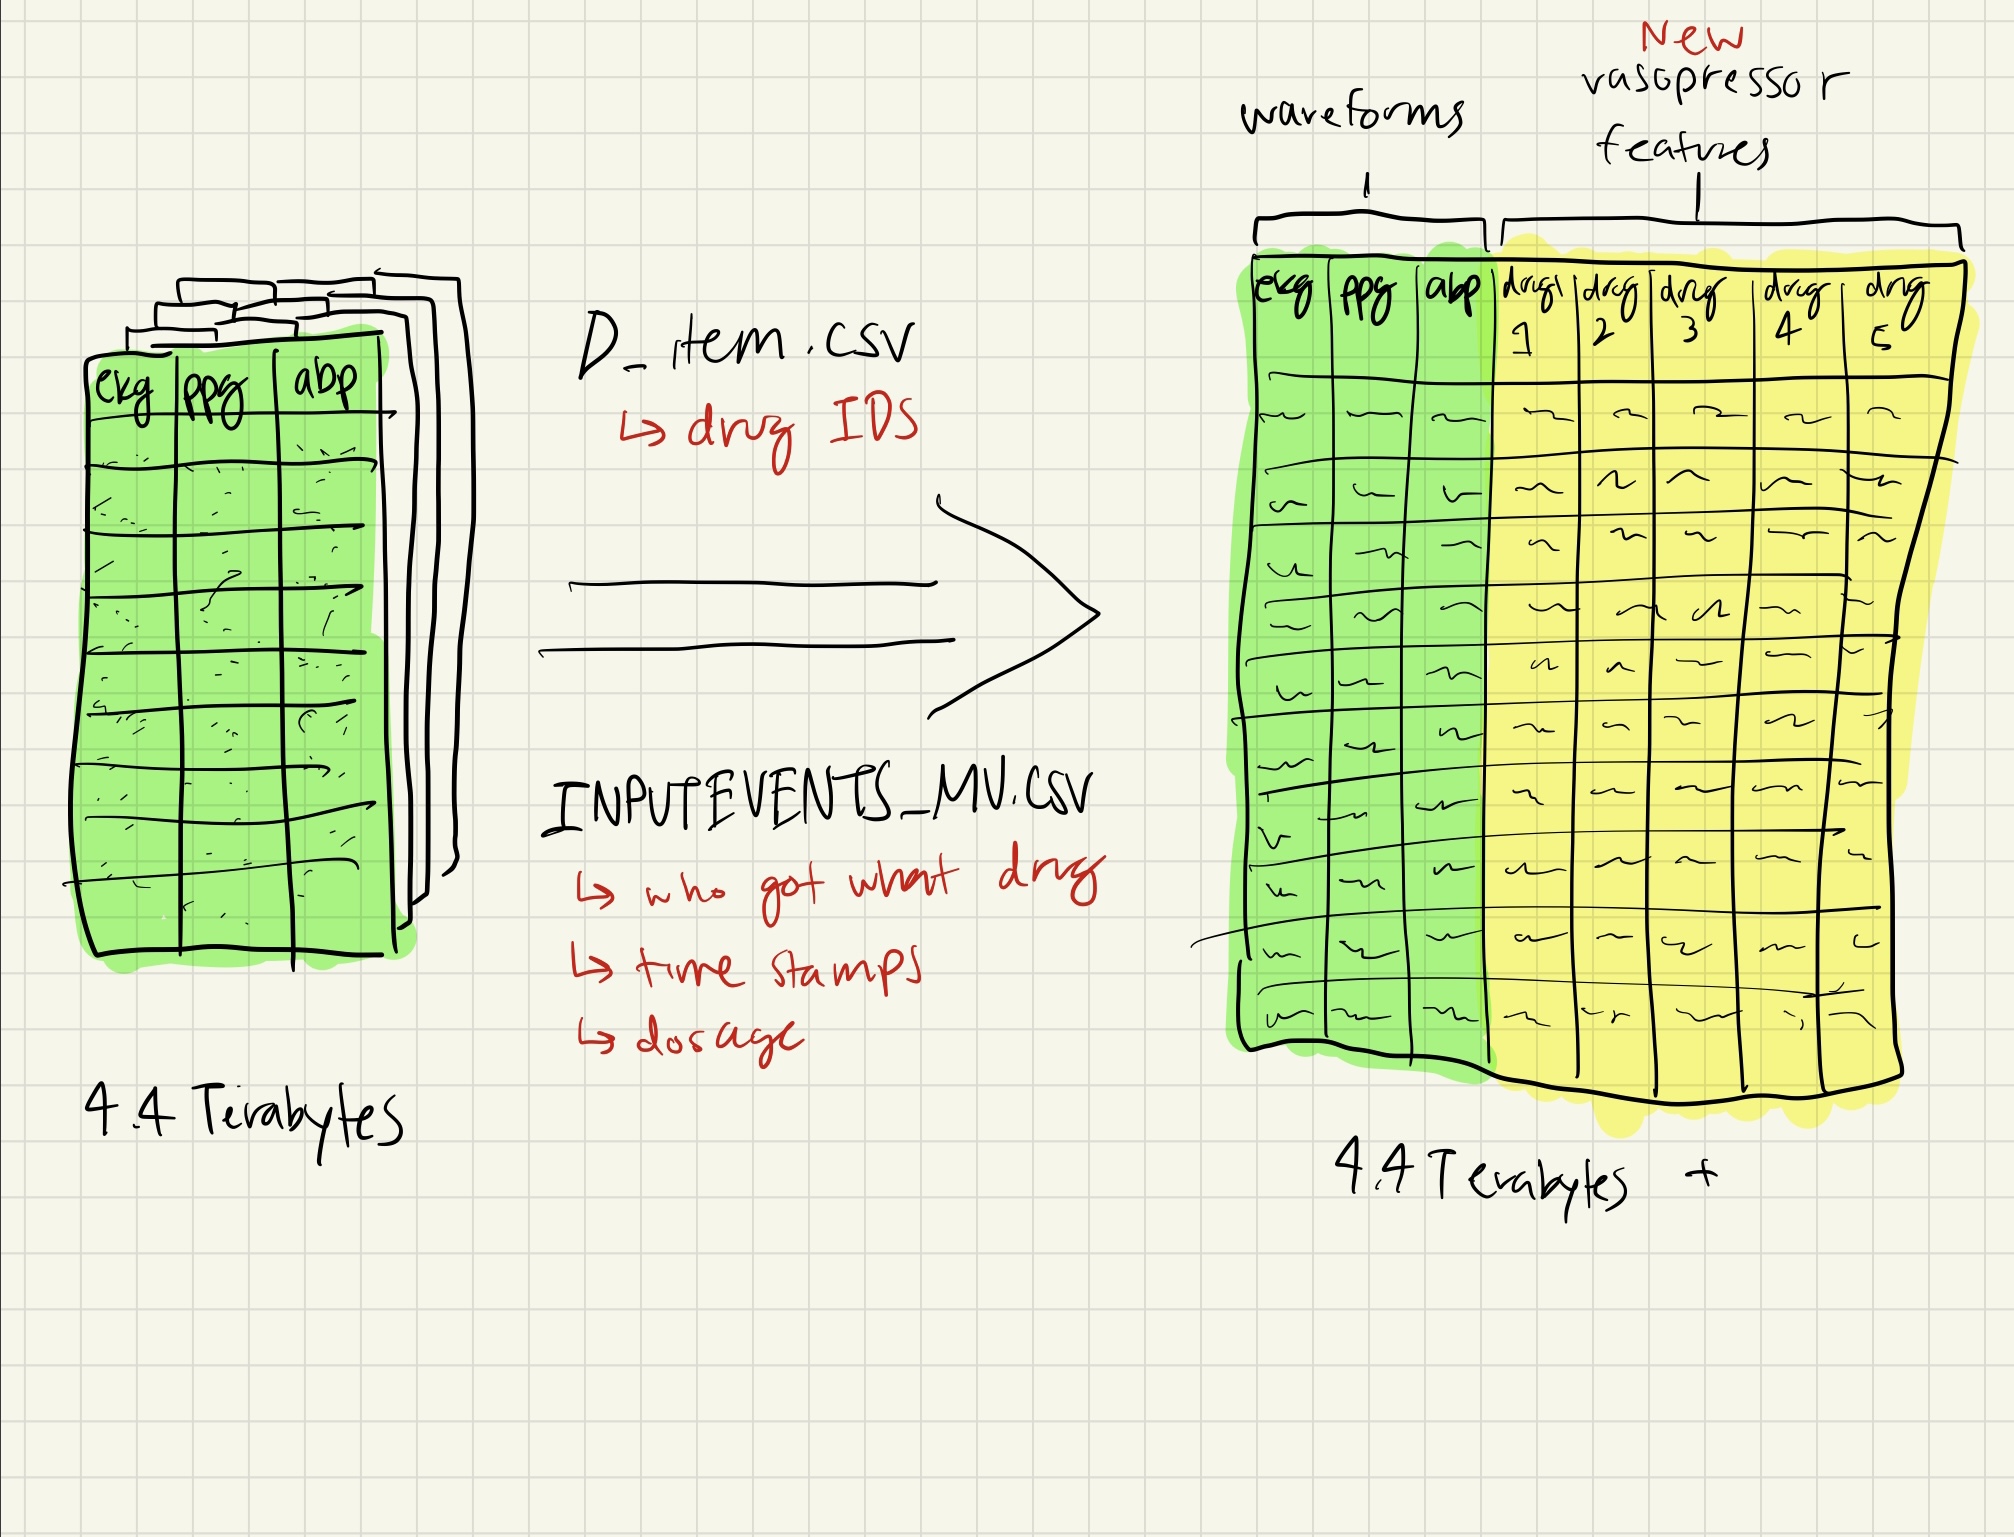 ekg ppg abp
4.4 Terabytes
D_item.csv
↳ drug IDS
INPUTEVENTS_MV.CSV
↳ who got what drug
↳ time stamps
↳ dosage
waveforms
New
vasopressor
features
ekg ppg abp drug 1 drug 2 drug 3 drug 4 drug 5
4.4 Terabytes +